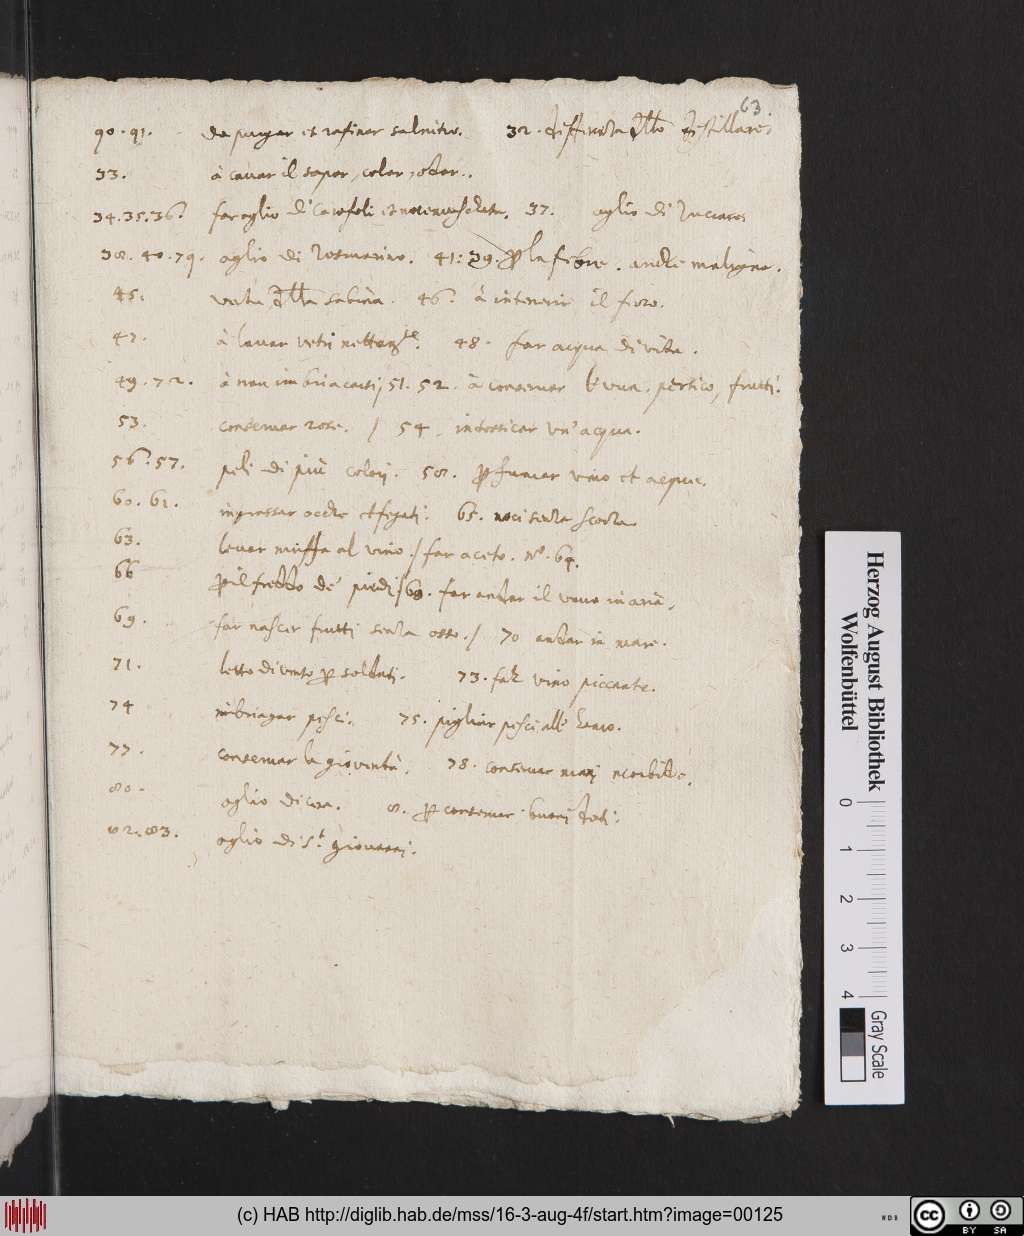 63.
90. 91. da purgar et rafinar salnitro. 32. differenza dello distillare
33. à cavar il sapor, color, odor.
34. 35. 36. far oglio di Carofoli et noce muschata. 37. oglio di
38. 40. 79. oglio di Rosmarino. 41: 39. la febre. anche maligna.
45. della sabina. 46. à intenerir il ferro.
47. à lavar vetri 48. far acqua di vita.
49. 72. à non imbriacarsi, 51. 52. à conservar l'uva, persico, frutti.
53. conservar rose. / 54. intossicar un'acqua.
56. 57. peli di più colori. 58. fumar vino et acqua.
60. 61. ingrassar oche et fegati. 65. noci senza scorza
63. levar muffa al vino./ far aceto. No. 64.
66 il freddo de' piedi/ 68. far andar il vovo in aria.
69. far nascer frutti senza osso./ 70 andar in mare.
71. letto di vento soldati. 73. far vino piccante.
74 imbriagar pesci. 75. pigliar pesci all'
77. conservar la gioventù. 78. conservar
80. oglio di cera. 8. conservar buoni
82. 83. oglio di St. giovanni.
Herzog August Bibliothek
Wolfenbüttel
0 1 2 3 4
Gray Scale
(c) HAB http://diglib.hab.de/mss/16-3-aug-4f/start.htm?image=00125
WDB
cc BY SA